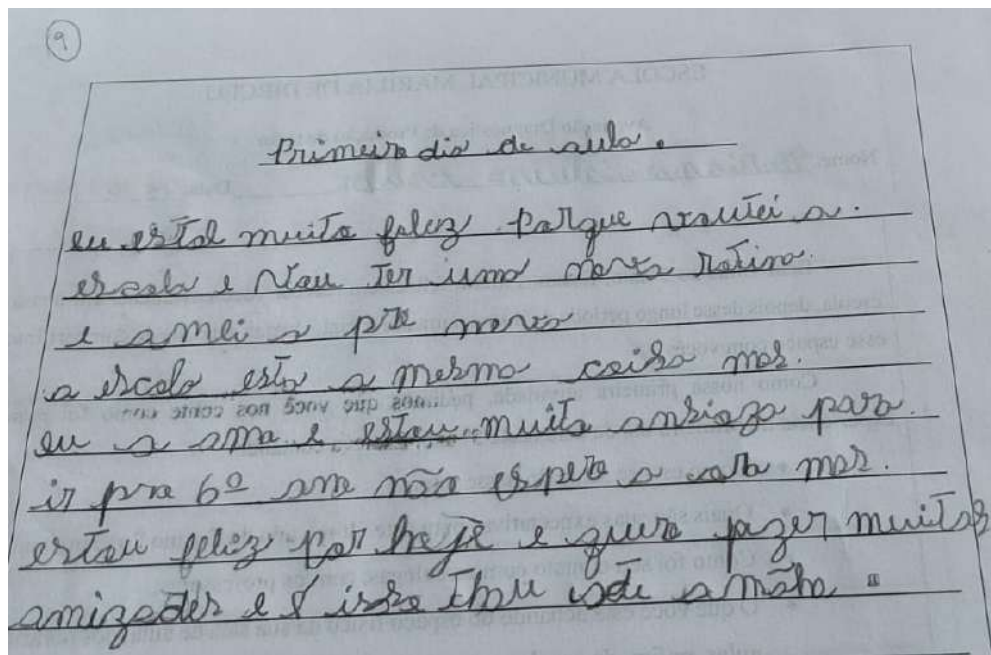 9
Primeiro dia de aula.
eu estol muito felez porque voutei a.
escola e Vou Ter uma nova rotina.
e amei a pro nova
a escola esta a mesma coisa mas.
eu a amo e estou muito ansioza para.
ir pra 6º ano não espero a ora mas.
estou feliz por hoje e quero fazer muitas
amizades e é isso thau até amãha.